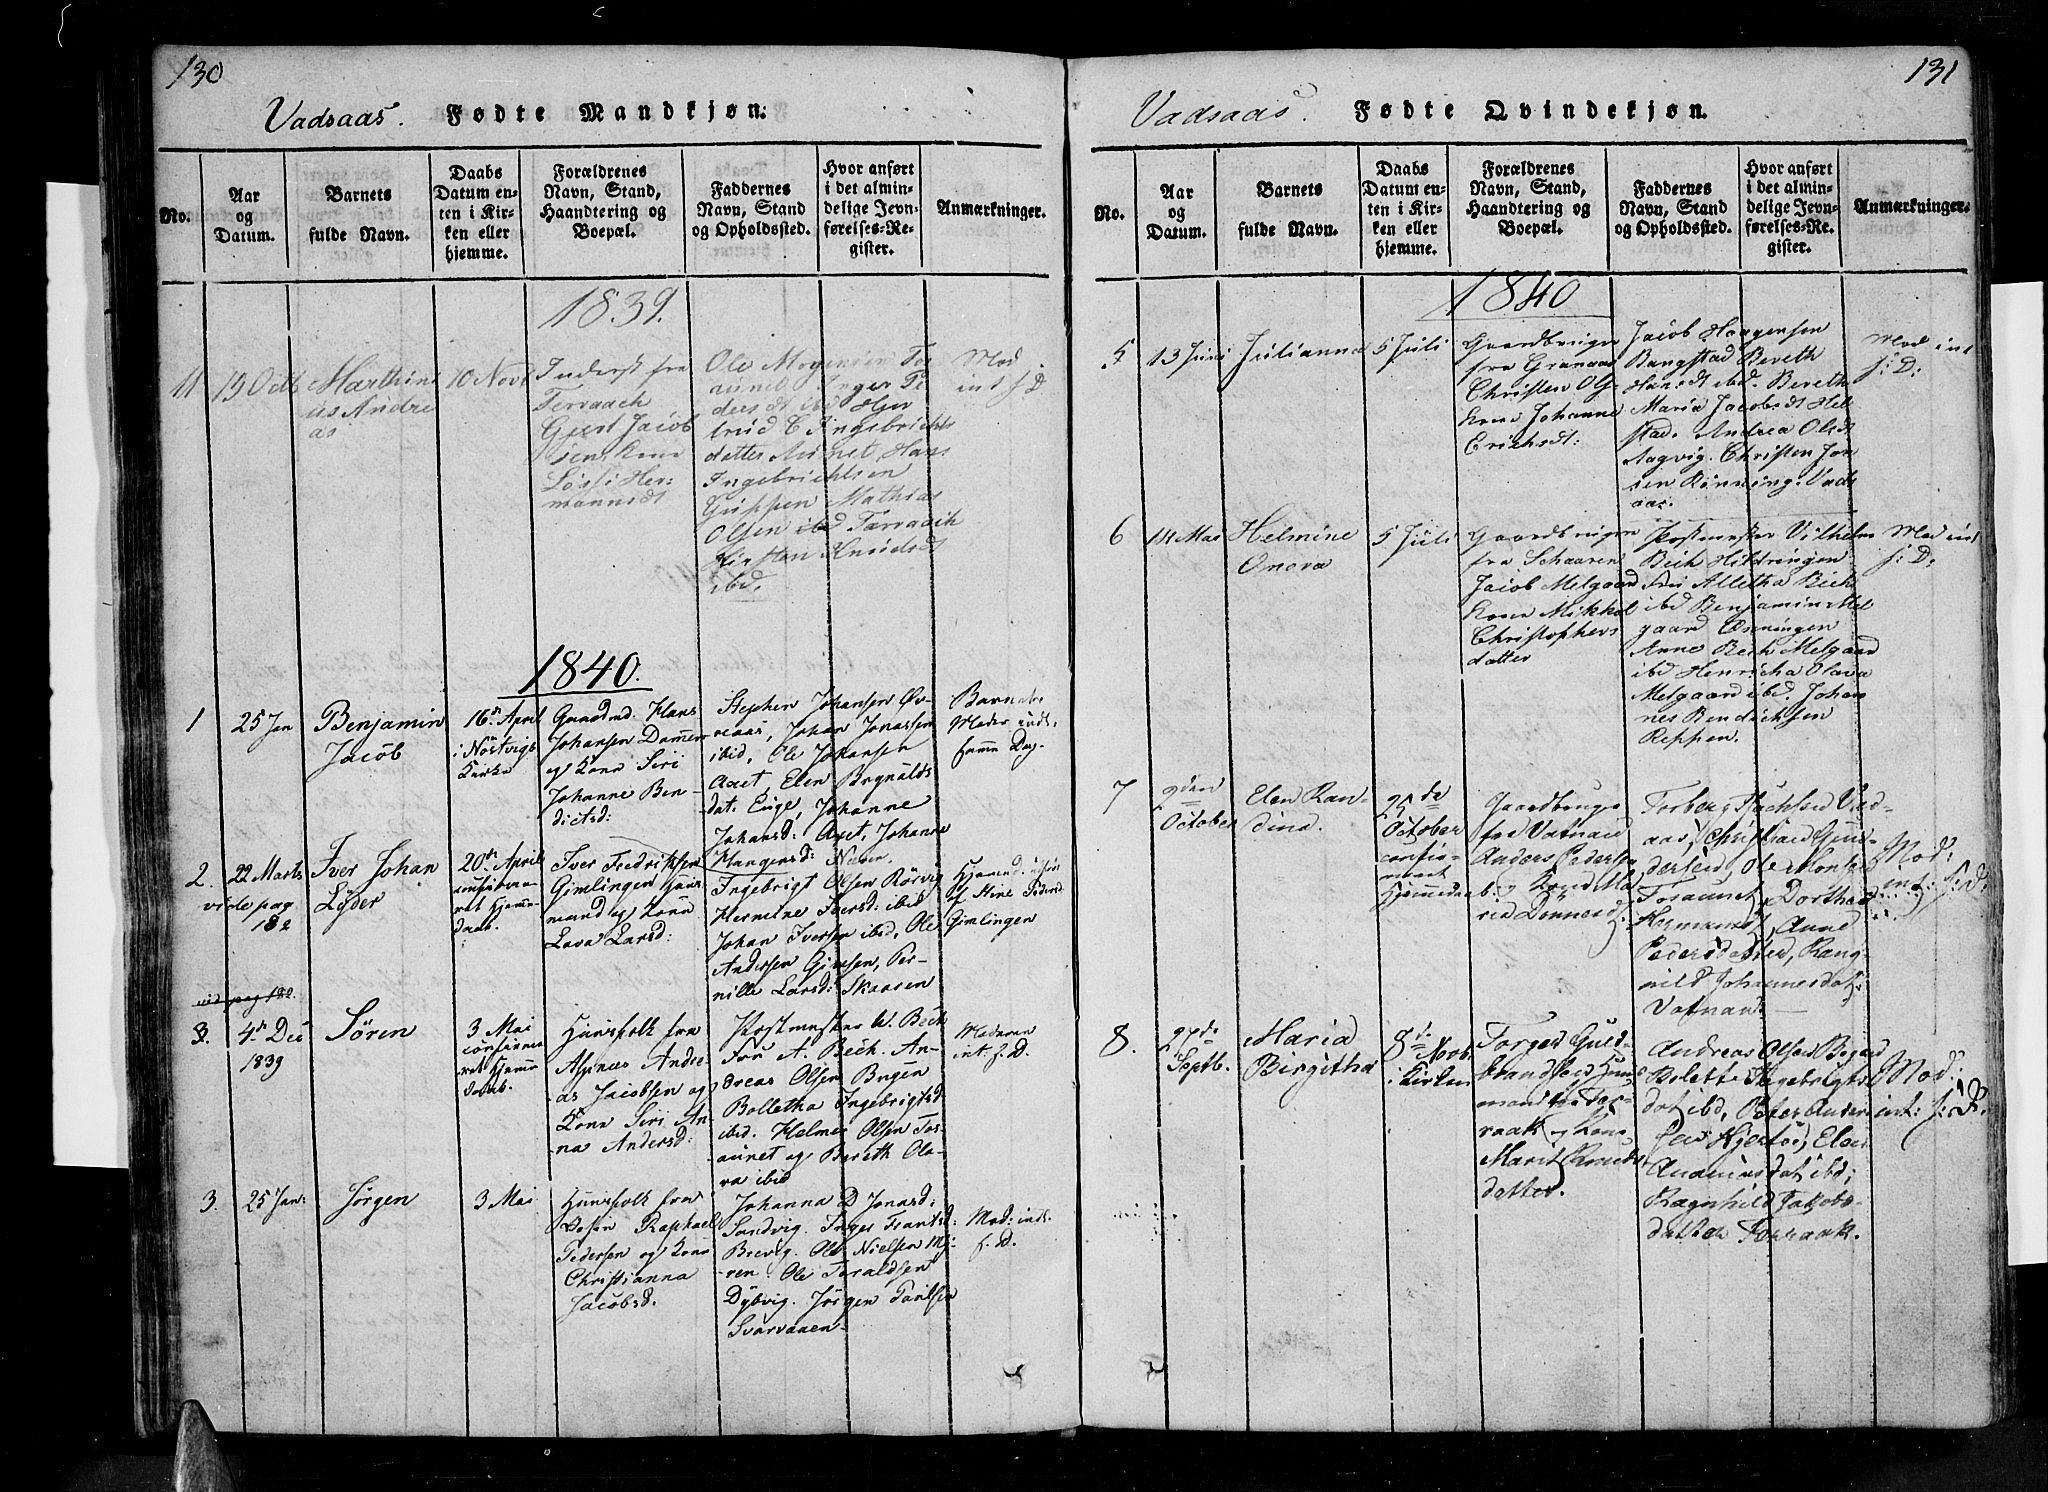 130
Vadsaas. Fødte Mandkjøn.
No.
Aar
og
Datum.
Barnets
fulde Navn.
Daabs
Datum en-
ten i Kir-
ken eller
hjemme.
Forældrenes
Navn, Stand,
Haandtering og
Boepæl.
Faddernes
Navn, Stand
og Opholdssted.
Hvor anført
i det almin-
delige Jevn-
førelses-Re-
gister.
Anmærkninger.
1839.
11
13 Octb
Marthin
us Andre
as
10 Novb
Inderst fra
Terraach
Jacob
sen, Kone
Her-
mannsdt
Ole Mogensen Tos
aunet Inger Pe
dersdt ibd
Ingebricht
datter Hans
Ingebrichtsen
Mathias
Olsen ibid Tarraach
Kirsten Knudsdt
ibd.
Mod
int f. D.
1840.
1
25 Jan
Benjamin
Jacob
16de April
i Nöstvigs
Kirke
Gaardmd. Hans
Johansen
og Kone Siri
Johanne Ben-
dictsd:
Stephen Johansen Øv-
Johan Jonassen
ibid, Ole Johansen
Aaet, Elen
dat. Johanne
Johansd: Aaet, Johanna
Haagensd:
Barnets
Moder indt.
samme Dag-
2.
22 Marts
vide pag
182
Iver Johan
Lyder
20de April
ret hjemme-
daab.
Iver Fredriksen
Gimlingen Huus
mand og Kone
Lava Larsd:
Ingebrigt Olsen Rörvig
Hermine Iversd: ibid
Johan Iversen ibid, Ole
Andersen Per-
nille Larsd: Skaaren
Gimlingen
vid pag 182.
3.
4de Dec
1839
Sören
3 Mai
confirme
ret hjemme
daab.
Huusfolk fra
Andre-
as Jacobsen og
Kone Siri An-
na Andersd:
Postmester W. Bech
Fru A. Bech. An-
dreas Olsen
Bolletha Ingebrigtsd
ibid. Helmer Olsen Tos
aunet og Bereth Ola-
va ibid
Moderen
int. f. D.
3.
25 Jan:
Jörgen
3 Mai
Huusfolk fra
Raphael
Pedersen og Kone
Christianna
Jacobsd.
Johanna D Jonasd:
Sandvig. Inger Frantsd:
Brevig. Ole Nielsen My-
ren. Ole Toraldsen
Dybvig. Jörgen
Svarvaaen-
Mod: indt.
f. D.
131
Vadsaas. Fødte Qvindekjøn.
No.
Aar
og
Datum.
Barnets
fulde Navn.
Daabs
Datum en-
ten i Kir-
ken eller
hjemme.
Forældrenes
Navn, Stand,
Haandtering og
Boepæl.
Faddernes
Navn, Stand
og Opholdssted.
Hvor anført
i det almin-
delige Jevn-
førelses-Re-
gister.
Anmærkninger.
1840
5
13 Juni
Julianna
5 Juli
Gaardbruger
fra Granaas
Christen Ols
Kone Johanne
Erichsdt:
Jacob Haagensen
Bangstad Bereth
Hansdt ibd. Bereth
Maria Jacobsdt Hel
stad. Andrea Olsdt
Aagvig. Christen Jon
sen Rönning. Vads
aas.
Mod int
f: D:
6
14 Mai
Helmine
Oneva
5 Juli
Gaardbruger
fra Schaaren
Jacob Melgaard
Kone Mikkal
Christophers
datter
Postmester Vilhelm
Bech Hildringen
Fru Alletha Bech
ibd Benjamin Mel
gaard Øsningen
Anne Bech Melgaard
ibd Henricha Olava
Melgaard ibd. Johan
nes Bendichsen
Reppen.
Mod int
f: D:
7
2den
October
Elen Ran-
dina.
25de
October
confir-
meret
Hjemmedaab
Gaardbruger
fra Vatnan
Anders Peders
og Kone Ma
ren Dönnesd
Torberg Isachsen Vad-
aas, Christian Gun-
dersen, Ole
Tosaunet, Dorthea
Hermansd, Anne
Pedersdatter, Rang-
nild Johannesdat:
Vatnan.
Mod:
int: f: D:
8.
27de
Septb.
Maria
Birgitha
8de Nov.
i Kirken
Torger Guld-
brandsen Huus
mand fra Ter-
raak og Kone
Marit Knuds-
datter.
Andreas Olsen
Bolette Ingebrigts
dat ibd, Peter Ander
sen Hjertöe, Elen
dat ibd;
Ragnhild Jakobs-
datter Terraak.
Mod:
int: f: D.